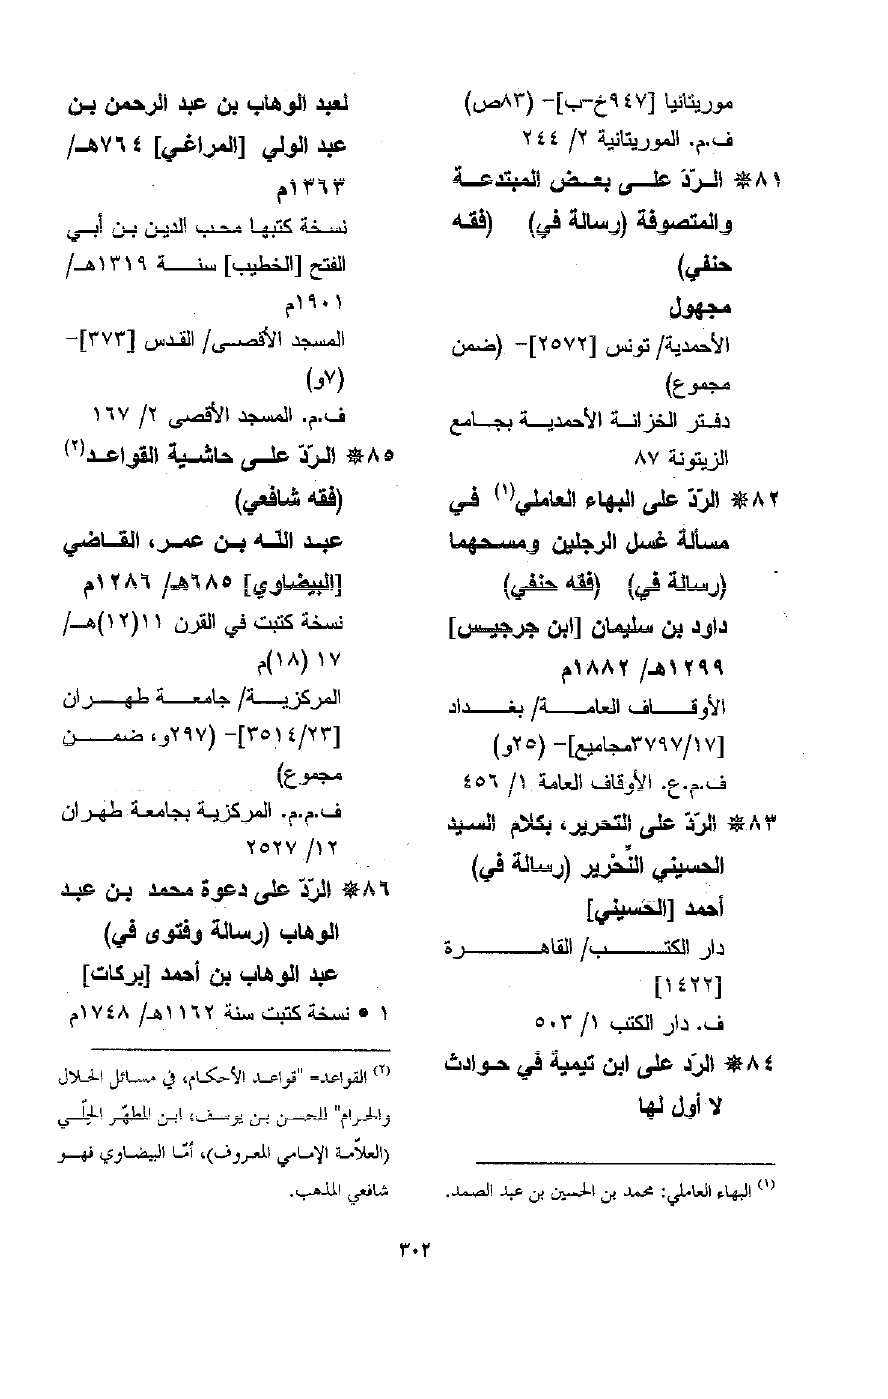 موريتانيا [٩٤٧خ-ب]- (٨٣ص)
ف.م. الموريتانية ٢/ ٢٤٤
٨١* الردّ على بعض المبتدعة
والمتصوفة (رسالة في) (فقه
حنفي)
مجهول
الأحمدية/ تونس [٢٥٧٢]- (ضمن
مجموع)
دفتر الخزانة الأحمدية بجامع
الزيتونة ٨٧
٨٢* الردّ على البهاء العاملي(١) في
مسألة غسل الرجلين ومسحهما
(رسالة في) (فقه حنفي)
داود بن سليمان [ابن جرجيس]
١٢٩٩هـ/ ١٨٨٢م
الأوقاف العامة/ بغداد
[٣٧٩٧/١٧مجاميع]- (٢٥و)
ف.م.ع. الأوقاف العامة ١/ ٤٥٦
٨٣* الردّ على التحرير، بكلام السيد
الحسيني النِّحْرير (رسالة في)
أحمد [الحسيني]
دار الكتب/ القاهرة
[١٤٢٢]
ف. دار الكتب ١/ ٥٠٣
٨٤* الردّ على ابن تيمية في حوادث
لا أول لها
(١) البهاء العاملي: محمد بن الحسين بن عبد الصمد.
لعبد الوهاب بن عبد الرحمن بن
عبد الولي [المراغي] ٧٦٤هـ/
١٣٦٣م
نسخة كتبها محب الدين بن أبي
الفتح [الخطيب] سنة ١٣١٩هـ/
١٩٠١م
المسجد الأقصى/ القدس [٣٧٣]-
(٧و)
ف.م. المسجد الأقصى ٢/ ١٦٧
٨٥* الردّ على حاشية القواعد(٢)
(فقه شافعي)
عبد الله بن عمر، القاضي
[البيضاوي] ٦٨٥هـ/ ١٢٨٦م
نسخة كتبت في القرن ١١(١٢)هـ/
١٧ (١٨)م
المركزية/ جامعة طهران
[٣٥١٤/٢٣]- (٢٩٧و، ضمن
مجموع)
ف.م.م. المركزية بجامعة طهران
١٢/ ٢٥٢٧
٨٦* الردّ على دعوة محمد بن عبد
الوهاب (رسالة وفتوى في)
عبد الوهاب بن أحمد [بركات]
١ • نسخة كتبت سنة ١١٦٢هـ/ ١٧٤٨م
(٢) القواعد= "قواعد الأحكام، في مسائل الحلال
والحرام" للحسن بن يوسف، ابن المطهّر الحِلّي
(العلاّمة الإمامي المعروف)، أمّا البيضاوي فهو
شافعي المذهب.
٣٠٢